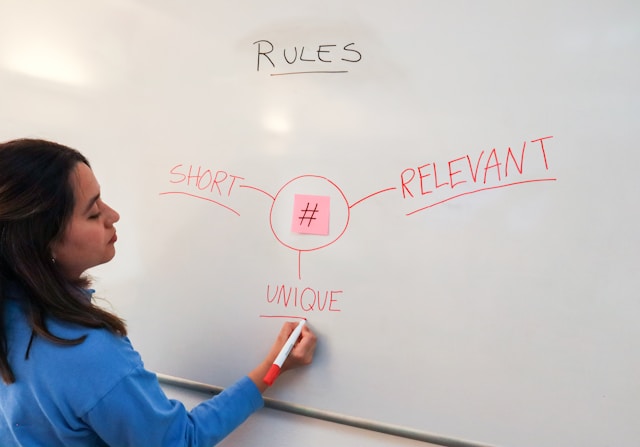 RULES
SHORT
RELEVANT
#
UNIQUE